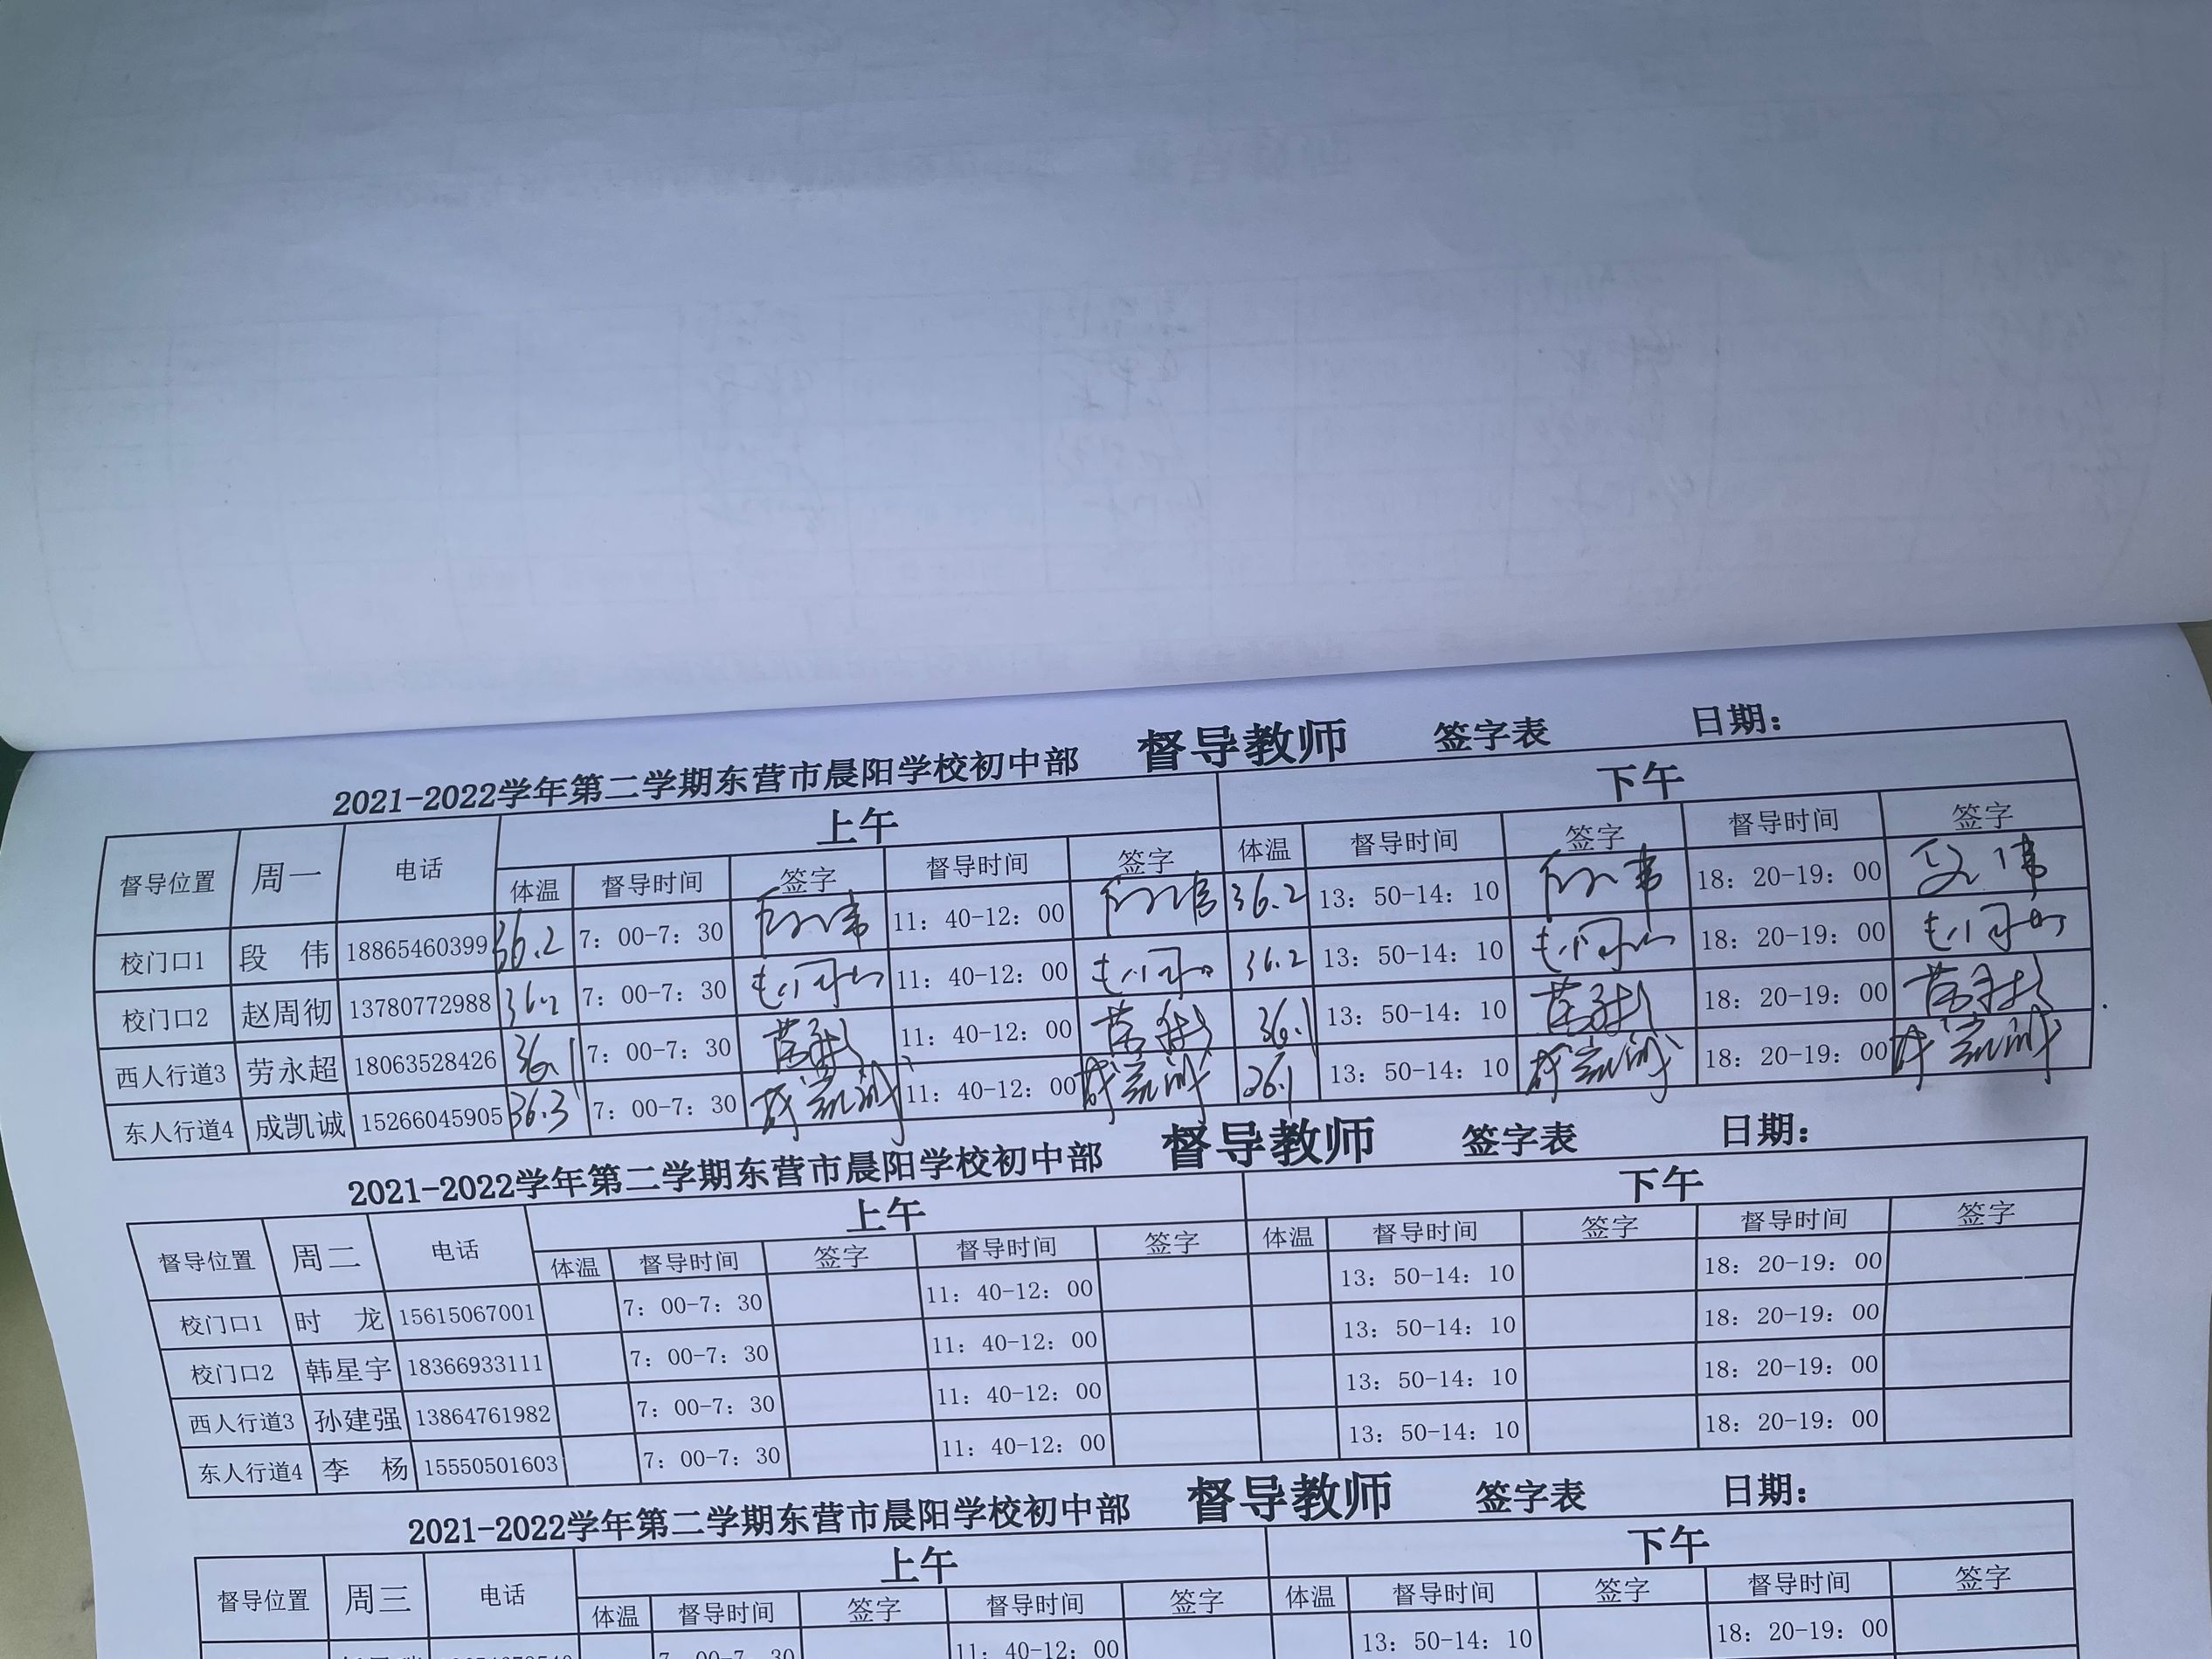 2021-2022学年第二学期东营市晨阳学校初中部 督导教师 签字表 日期：
督导位置 周一 电话 上午 下午
体温 督导时间 签字 督导时间 签字 体温 督导时间 签字 督导时间 签字
校门口1 段 伟 18865460399 36.2 7：00-7：30 段伟 11：40-12：00 段伟 36.2 13：50-14：10 段伟 18：20-19：00 段伟
校门口2 赵周彻 13780772988 36.2 7：00-7：30 11：40-12：00 36.2 13：50-14：10 18：20-19：00
西人行道3 劳永超 18063528426 36.1 7：00-7：30 劳永超 11：40-12：00 劳永超 36.1 13：50-14：10 劳永超 18：20-19：00 劳永超
东人行道4 成凯诚 15266045905 36.3 7：00-7：30 成凯诚 11：40-12：00 成凯诚 36.1 13：50-14：10 成凯诚 18：20-19：00 成凯诚
2021-2022学年第二学期东营市晨阳学校初中部 督导教师 签字表 日期：
督导位置 周二 电话 上午 下午
体温 督导时间 签字 督导时间 签字 体温 督导时间 签字 督导时间 签字
校门口1 时 龙 15615067001 7：00-7：30 11：40-12：00 13：50-14：10 18：20-19：00
校门口2 韩星宇 18366933111 7：00-7：30 11：40-12：00 13：50-14：10 18：20-19：00
西人行道3 孙建强 13864761982 7：00-7：30 11：40-12：00 13：50-14：10 18：20-19：00
东人行道4 李 杨 15550501603 7：00-7：30 11：40-12：00 13：50-14：10 18：20-19：00
2021-2022学年第二学期东营市晨阳学校初中部 督导教师 签字表 日期：
督导位置 周三 电话 上午 下午
体温 督导时间 签字 督导时间 签字 体温 督导时间 签字 督导时间 签字
7：00-7：30 11：40-12：00 13：50-14：10 18：20-19：00